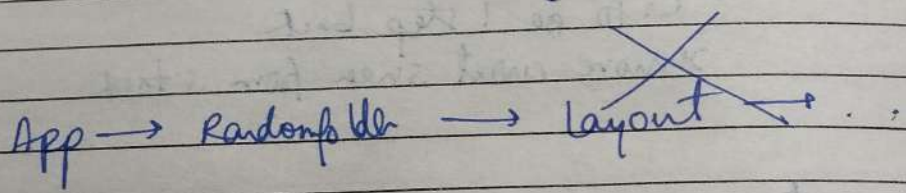 App → Randomfolder → Layout → . . .